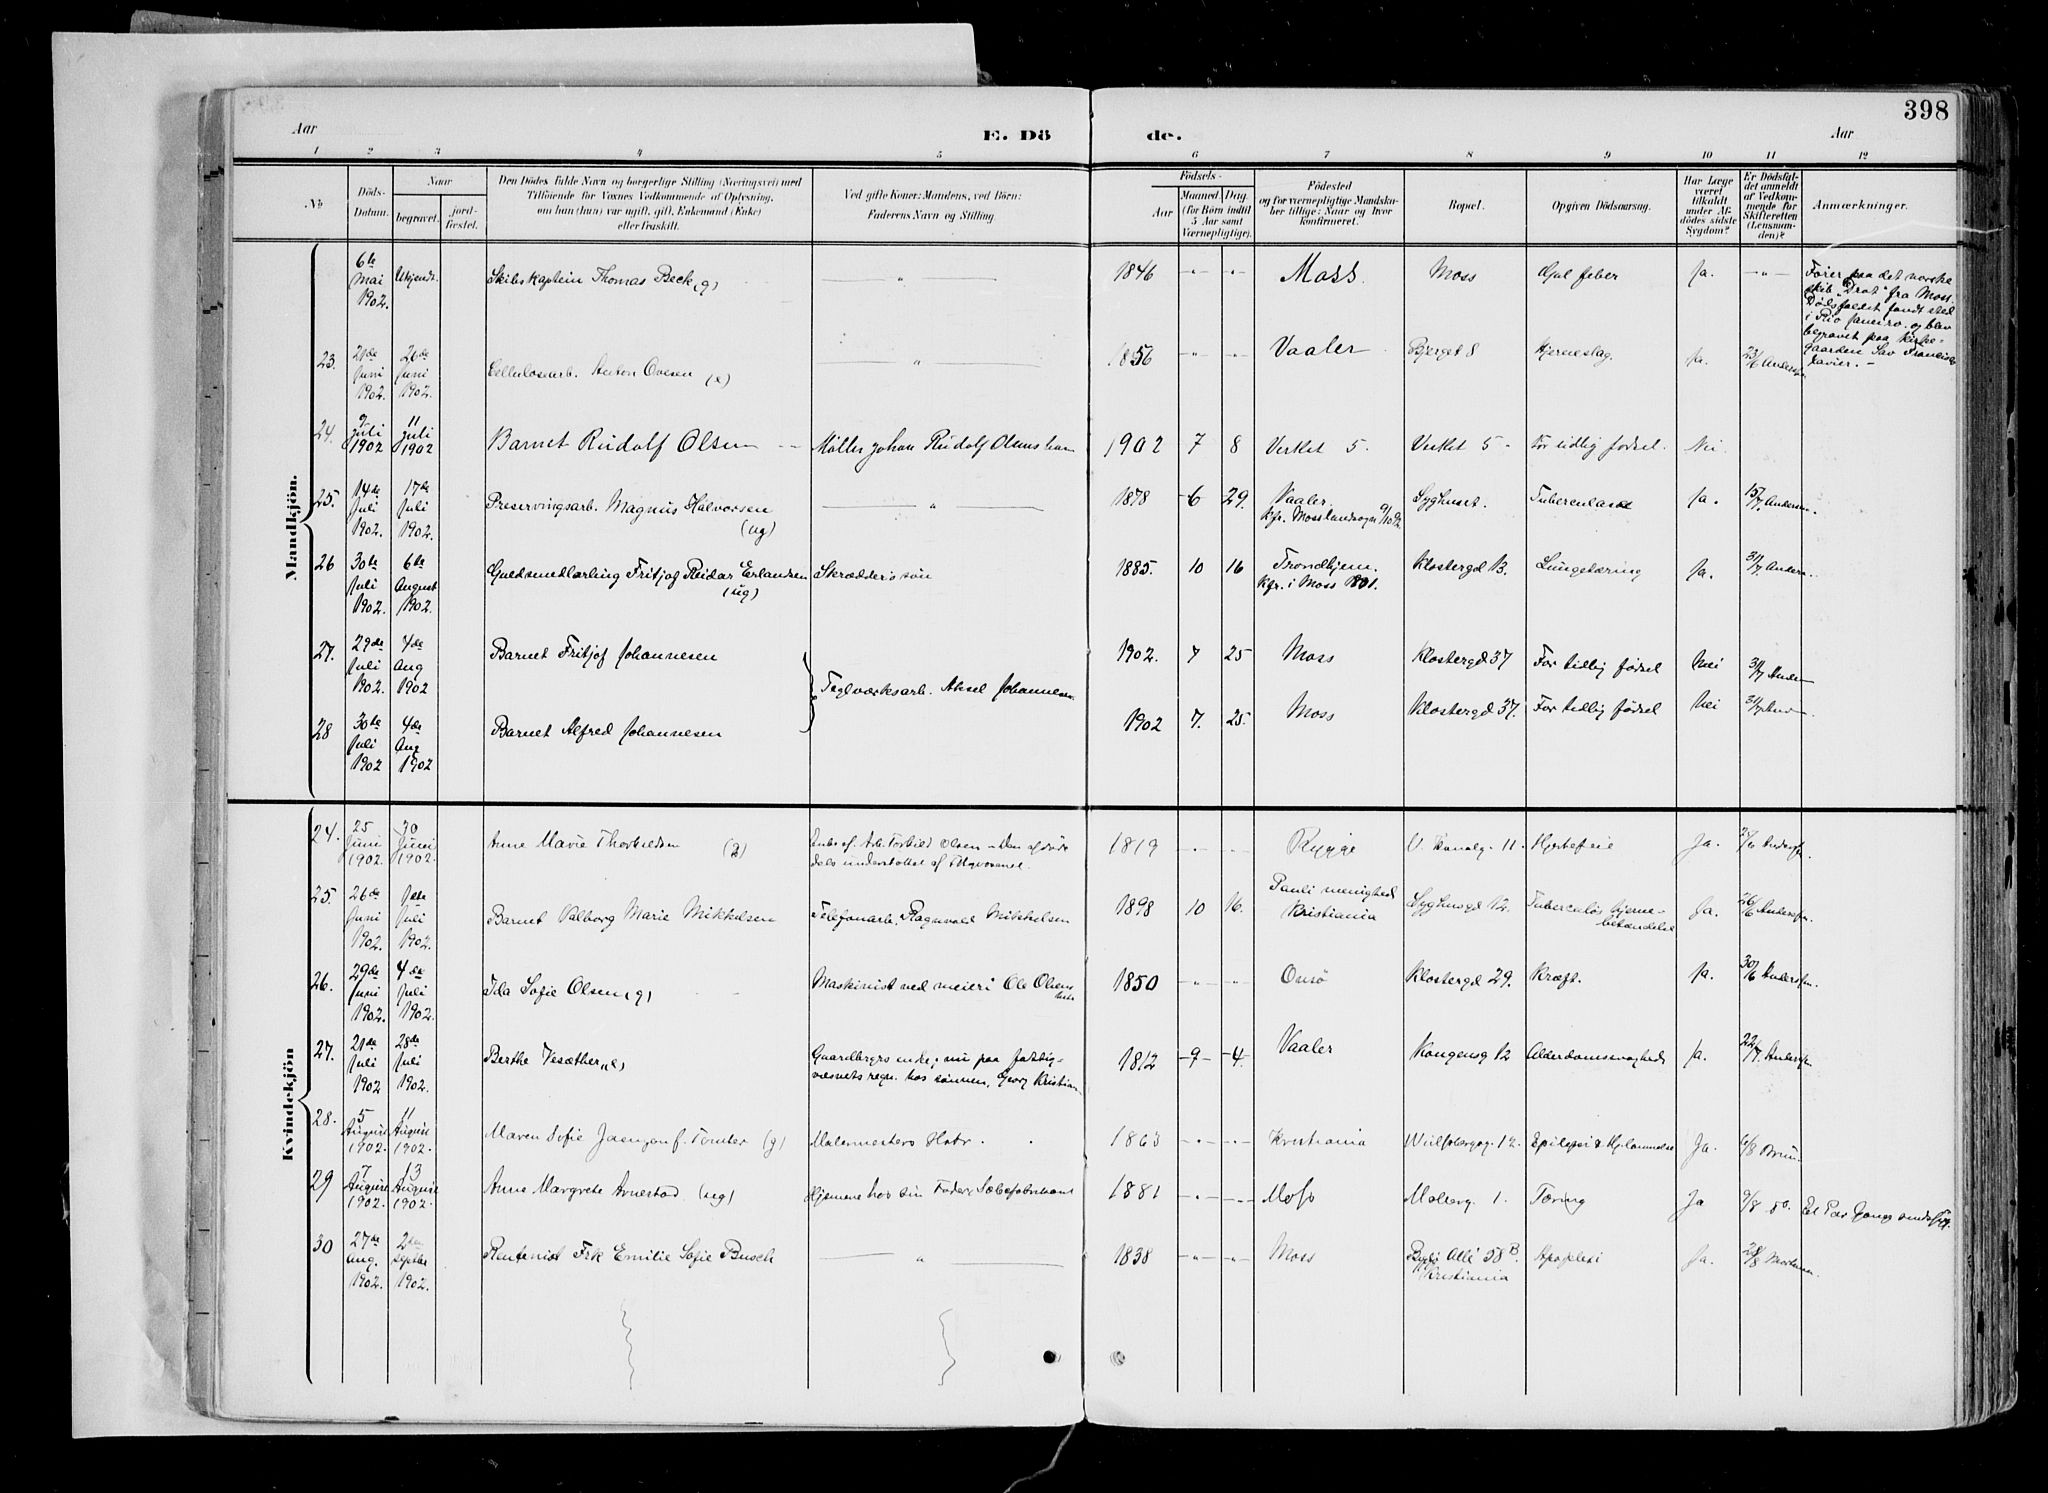 398
Aar
E. Dö
de.
Aar
1 2 3 4 5 6 7 8 9 10 11 12
No
Döds-
Datum.
Naar
begravet.
jord-
fæstet.
Den Dödes fulde Navn og borgerlige Stilling (Næringsvei) med
Tilföiende for Voxnes Vedkommende af Oplysning,
om han (hun) var ugift, gift, Enkemand (Enke)
eller fraskilt.
Ved gifte Koner: Mandens, ved Börn:
Faderens Navn og Stilling.
Födsels-
Aar
Maaned.
Dag.
(for Börn indtil
5 Aar samt
Værnepligtige).
Födested
og for værnepligtige Mandska-
ber tillige: Naar og hvor
konfirmeret.
Bopæl.
Opgiven Dödsaarsag.
Har Læge
været
tilkaldt
under Af-
dödes sidste
Sygdom?
Er Dödsfal-
det anmeldt
af Vedkom-
mende for
Skifteretten
(Lensman-
den)?
Anmærkninger.
Mandkjön.
6te Mai 1902. Ukjendt. Skibskaptein Thomas Beck (g) " 1846 " " Moss. Moss Gul feber Ja. "
Fører paa det norske
skib "Drot" fra Moss.
Dødsfaldet fandt sted
i Rio Janeiro og blev
begravet paa kirke-
gaarden Sav Francisko
Xavier.
23. 21de Juni 1902 26de Juni 1902. Cellulosearb. Anton Ovesen (e) " 1856 " " Vaaler Bjerget 8 Hjerneslag. Ja. 23/6 Andersen
24. 9 Juli 1902 11 Juli 1902 Barnet Rudolf Olsen Møller Johan Rudolf Olsens barn 1902 7 8 Verket 5. Verket 5 For tidlig fødsel. Nei
25. 14de Juli 1902. 17de Juli 1902. Preservingsarb. Magnus Halvorsen (ug) " 1878 6 29. Vaaler. Kfr. Moss landsogn 9/10 92. Syghuset. Tuberculose Ja. 15/7 Andersen.
26 30te Juli 1902. 6te August 1902. Guldsmedlærling Fritjof Reidar Erlandsen (ug) Skrædders søn 1885. 10 16 Trondhjem. Kfr. i Moss 1801. Klostergd 13. Lungetæring Ja. 31/7 Anders.
27. 29de Juli 1902. 4de Aug 1902 Barnet Fritjof Johannesen 1902. 7 25 Moss Klostergd 37 For tidlig fødsel Nei 31/7 Ander
Teglværksarb. Aksel Johannesen
28 30te Juli 1902 4de Aug 1902 Barnet Alfred Johannesen 1902 7. 25. Moss Klostergd 37. For tidlig fødsel Nei 31/7 And
Kvindekjön
24. 25 Juni 1902. 30 Juni 1902. Anne Marie Thorbildsen Enke af. Arb. Torbild Olsen – Den afdøde
dels understøttet af Fttgvæsenet 1819 " " Rygge V. Kanalg. 11. Hjertefeil Ja. Andersen.
25. 26de Juni 1902. 1ste Juli 1902. Barnet Valborg Marie Mikkelsen Telefonarb. Ragnvald Mikkelsen 1898 10 16. Pauli menighed Kristiania Syghusgd 12. Tuberculøs hjerne-
betændelse Ja. 26/6 Andersen.
26. 29de Juni 1902. 4de Juli 1902. Ida Sofie Olsen (g) Maskinist ved meieri Ole Olsens 1850 " " Onsø Klostergd 29. Kræft. Ja. 30/6 Andersen.
27. 21de Juli 1902 28de Juli 1902. Berthe Vesæther (e) Gaardbrgrs enke; nu paa fattig-
væsnets regn. hos sønnen, Georg Kristian 1812 9 4. Vaaler Kongensg 12 Alderdomssvaghed Ja. 22/7 Andersen
28. 5 August 1902. 11 August 1902. Maren Sofie Jansen f. Tomter (g) Malermesters Hstr. 1863 " " Kristiania Wulfsbergsg. 12. Epilepsi & Hjlammelse Ja. 6/8 Bruun
29 7 August 1902. 13 August 1902. Anne Margrete Arnestad (ug) Hjemme hos sin Fader, Sæbefabrikant 1881 " " Moss Møllerg. 1. Tæring Ja 9/8 do. Et Par Gange
30 27de Aug. 1902. 2den septbr 1902. Rentenist Frk Emilie Sofie Busch " 1838 " " Moss Bygdø Allé 58 B. Kristiania Apoplexi Ja. 28/8